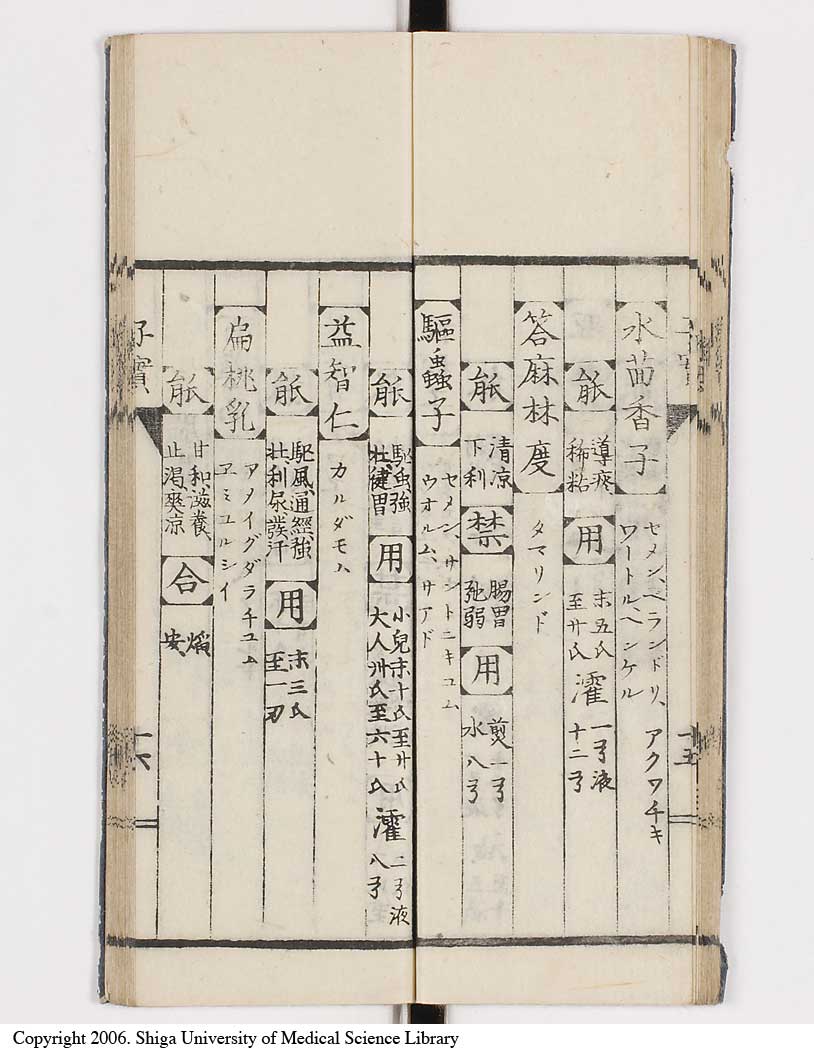 水茴香子
セメン、ヘランドリ、アクワチキ
ワートルヘンケル
能
導痰
稀粘
用
末五氏
至廿氏
濯
一弓液
十二弓
答麻林度
タマリンド
能
清凉
下利
禁
腸胃
弛弱
用
煎一弓
水八弓
驅蟲子
セメン、サントニキュム
ウオルム、サアド
能
駆虫強
壮健胃
用
小兒末十氏至廿氏
大人卅氏至六十氏
濯
二弓液
八弓
益智仁
カルダモハ
能
駆風通經強
壮利尿發汗
用
末三氏
至一刃
扁桃乳
アメイグダラチュム
ヱミュルシイ
能
甘和滋養
止渇爽凉
合
焔
安
子實
十五
十六
Copyright 2006. Shiga University of Medical Science Library